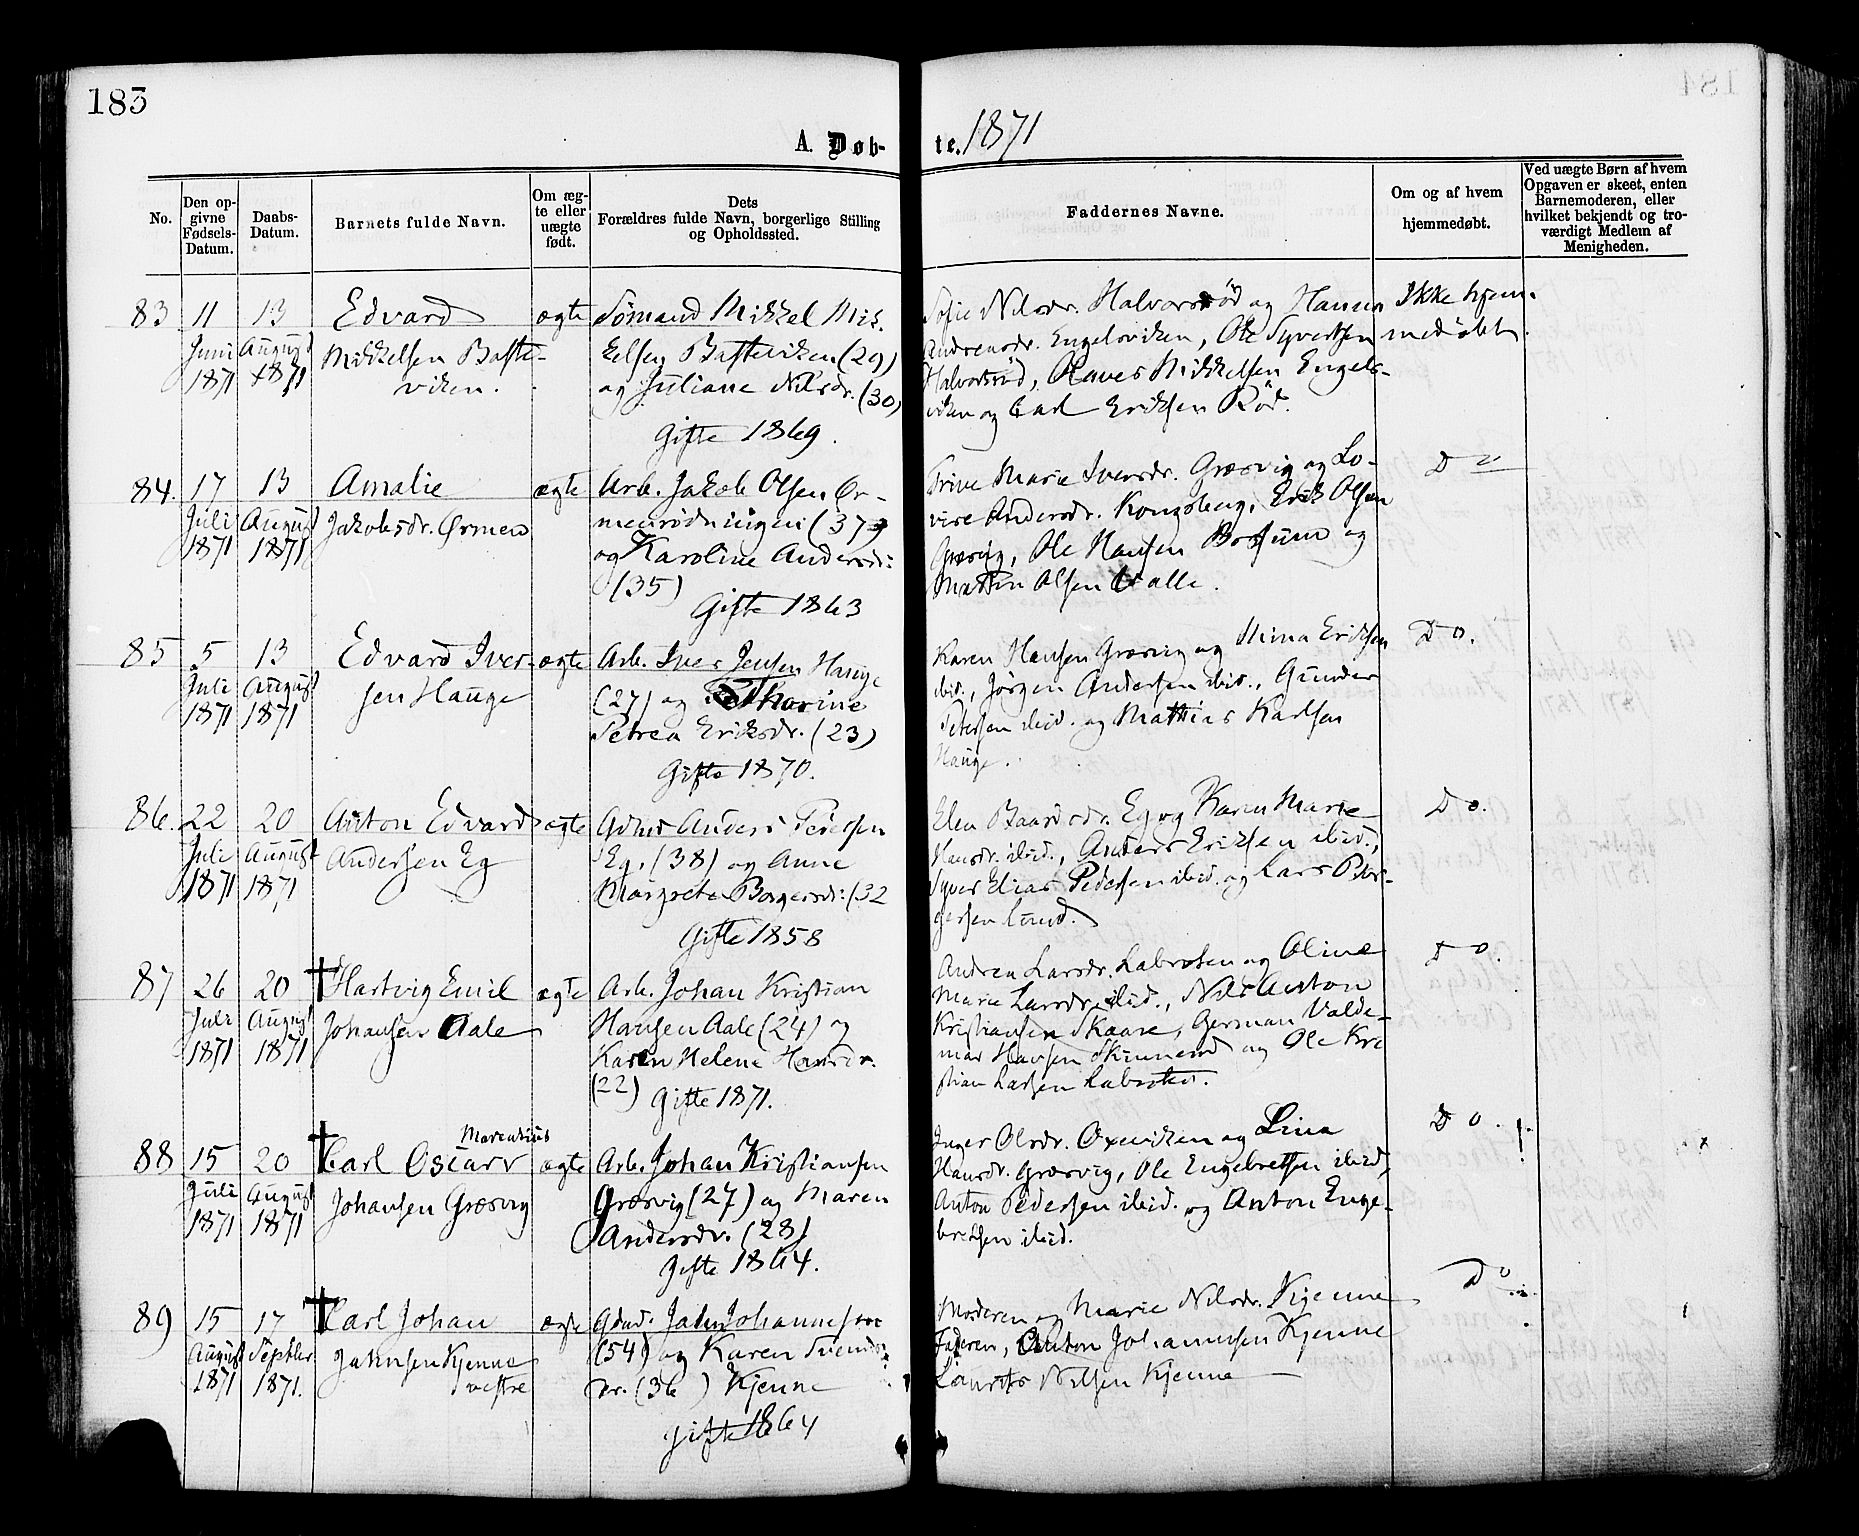 183
A. Døb-
te. 1871
No.
Den op-
givne
Fødsels-
Datum.
Daabs-
Datum.
Barnets fulde Navn.
Om æg-
te eller
uægte
født.
Dets
Forældres fulde Navn, borgerlige Stilling
og Opholdssted.
Faddernes Navne.
Om og af hvem
hjemmedøbt.
Ved uægte Børn af hvem
Opgaven er skeet, enten
Barnemoderen, eller
hvilket bekjendt og tro-
værdigt Medlem af
Menigheden.
83 11 13 Edvard ægte Sømand Mikkel Mik-
Juni August Mikkelsen Baste- kelsen Basteviken (29)
1871 1871 viken. og Juliane Nilsdr. (30)
Gifte 1869.
Sofie Nilsdr. Halvorsrød og Hanna Ikke hjem-
Andreasdr. Engelsviken, Ole Syvertsen medøbt.
Halvorsrød, Olaves Mikkelsen Engels-
viken og Carl Eriksen Rød.
84. 17 13 Amalie ægte Arb. Jakob Olsen Ør-
Juli August Jakobsdr. Ørmen menrødningen (37)
1871 1871 og Karoline Andersdr:
(35)
Gifte 1863
Trine Marie Iversdr. Græsvig og Lo- Do
vise Andersdr. Kongsberg, Erik Olsen
Græsvig, Ole Hansen Bossum og
Martin Olsen Valle.
85 5 13 Edvard Iver- ægte Arb. Iver Jensen Hauge
Juli August sen Hauge (27) og Katharine
1871 1871 Petrea Eriksdr. (23)
Gifte 1870.
Karen Hansen Græsvig og Mina Eriksen Do.
ibid., Jørgen Andersen ibid., Gunder
Petersen ibid. og Mathias Karlsen
Hauge.
86. 22 20 Anton Edvard ægte Gdmd Anders Pedersen
Juli August Andersen Eg Eg, (38) og Anne
1871 1871 Margrete Borgersdr: (32
Gifte 1858
Elen Baardsdr. Eg og Karen Marie Do.
Hansdr. ibid., Anders Eriksen ibid.,
Syver Elias Pedersen ibid. og Lars Bor-
gersen Lund.
87 26 20 Hartvig Emil ægte Arb. Johan Kristian
Juli August Johansen Aale Hansen Aale (24) og
1871 1871 Karen Helene Hansdr.
(22) Gifte 1871.
Andrea Larsdr. Labraten og Oline Do.
Marie Larsdr. ibid., Nils Anton
Kristiansen Skaare, German Valde-
mar Hansen og Ole Kri
stian Larsen Labraten.
88 15 20 Carl Oscar Marentius ægte Arb. Johan Kristiansen
Juli August Johansen Græsvig Græsvig (27) og Maren
1871 1871 Andersdr. (28)
Gifte 1864.
Inger Olsdr. Oxeviken og Lina Do.
Hansdr. Græsvig, Ole Engebretsen ibid,
Anton Pedersen ibid. og Anton Enge-
bretsen ibid.
89 15 17 Carl Johan ægte Gdmd. Jahn Johannesen
August Septbr Jahnsen Kjenne (54) og Karen Svends-
1871 1871. vestre dr. (36) Kjenne
Gifte 1864
Moderen og Marie Nilsdr. Kjenne Do
Faderen, Anton Johannesen Kjenne
Laurits Nilsen Kjenne